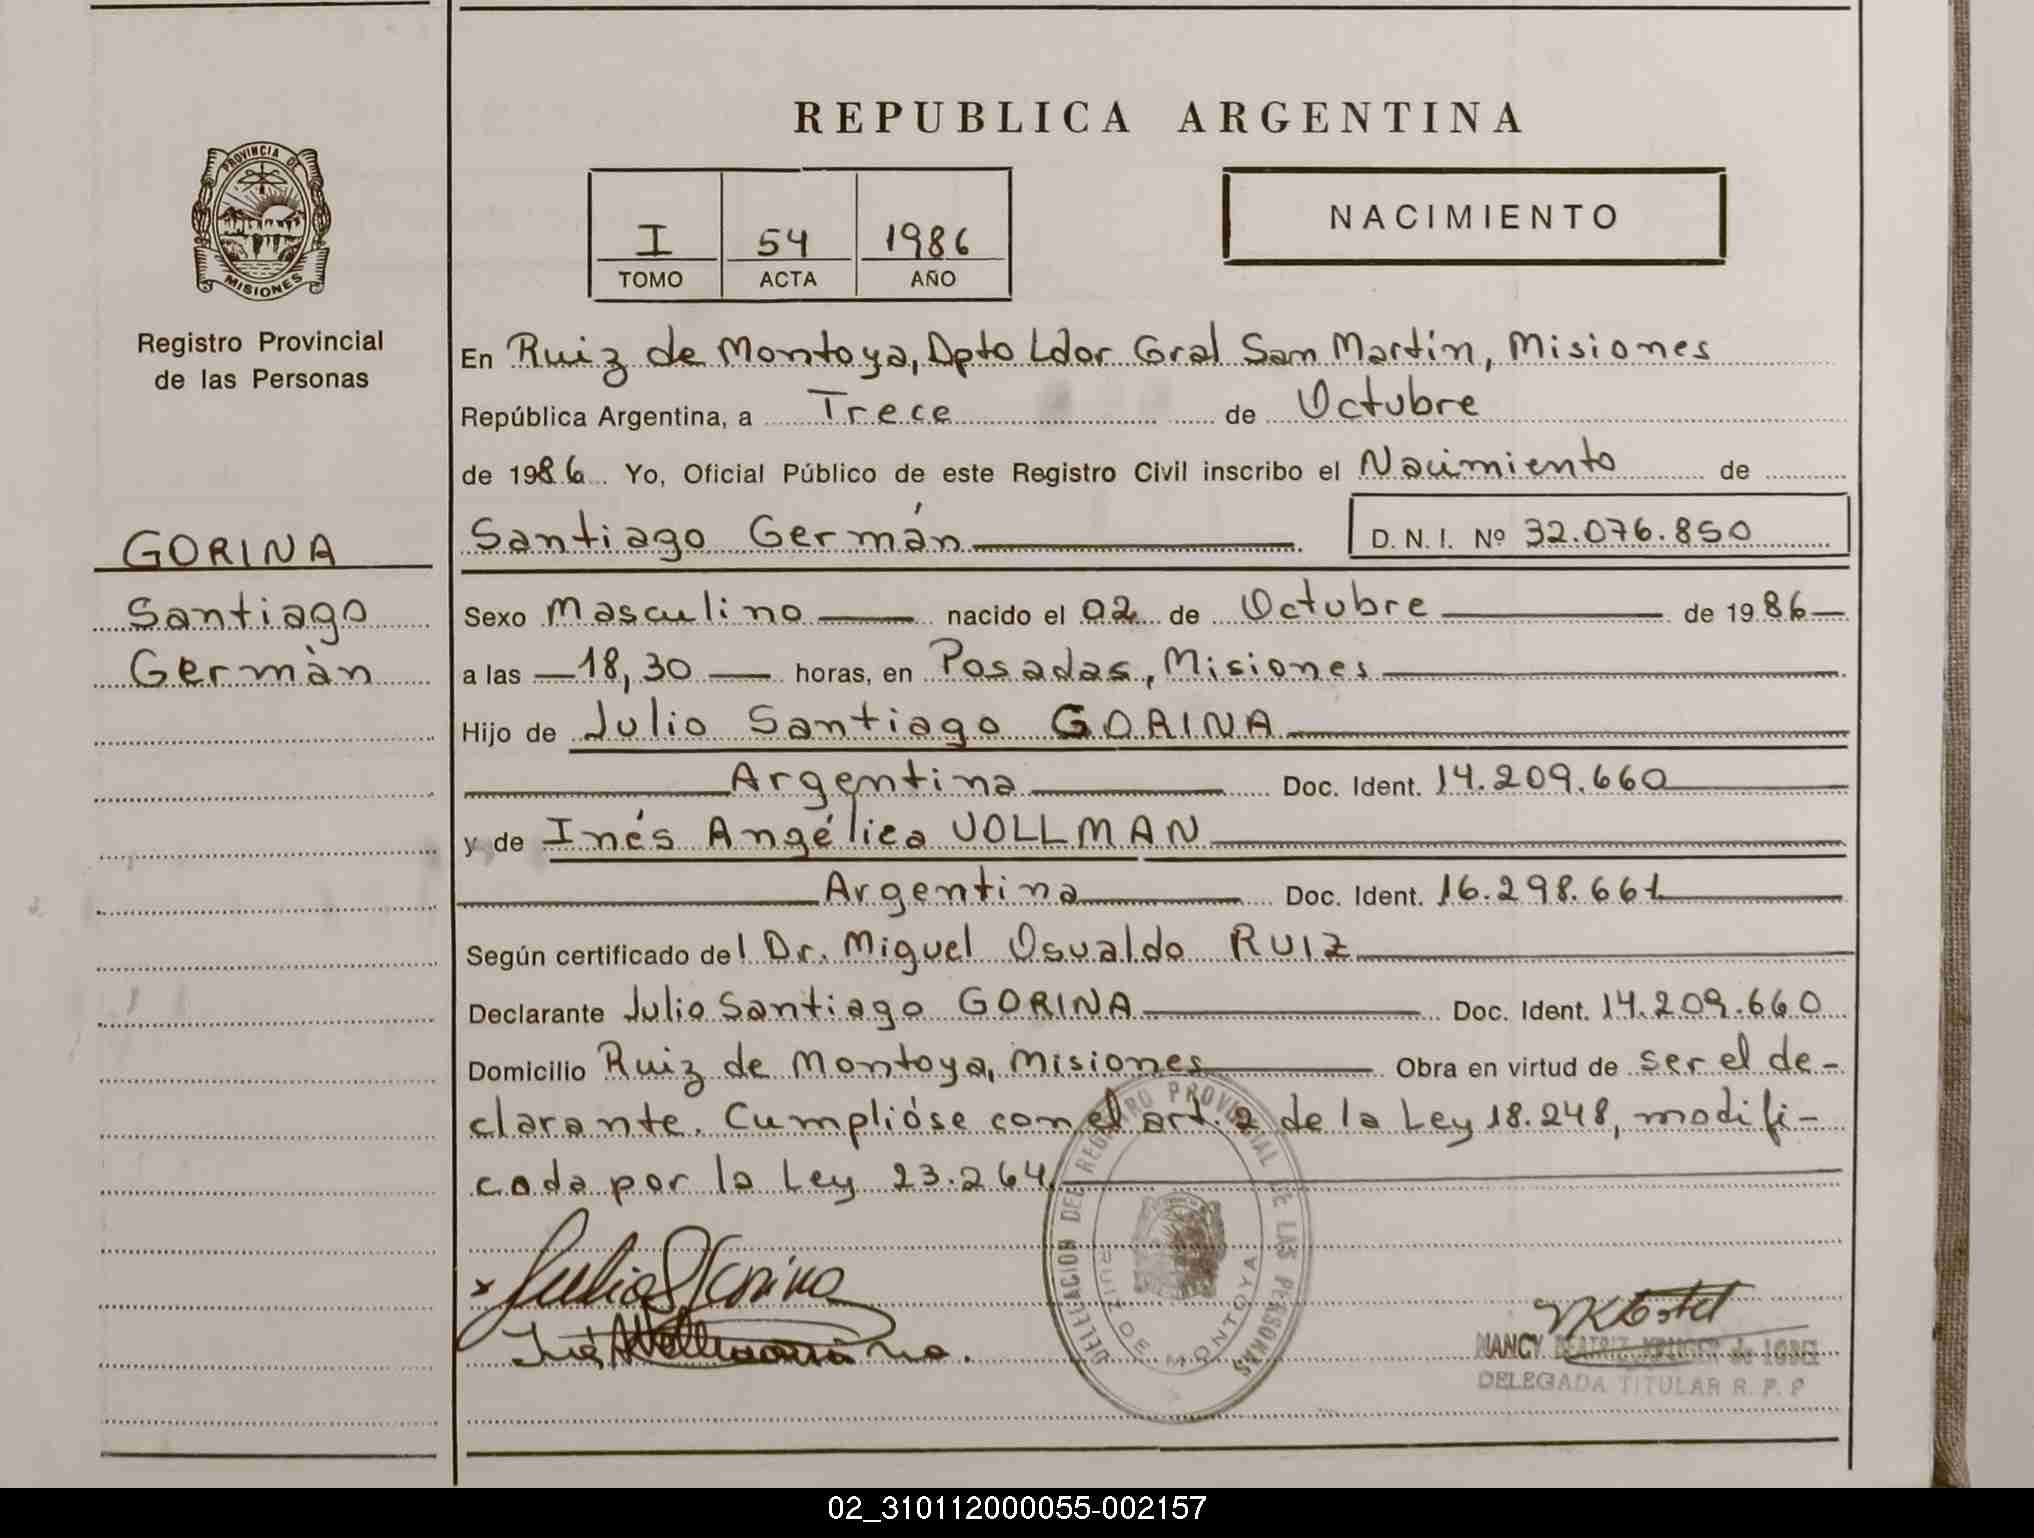 REPUBLICA ARGENTINA
PROVINCIA DE
MISIONES
Registro Provincial
de las Personas
I 54 1986
TOMO ACTA AÑO
NACIMIENTO
En Ruiz de Montoya, Dpto Ldor Gral San Martín, Misiones
República Argentina, a Trece de Octubre
de 1986 Yo, Oficial Público de este Registro Civil inscribo el Nacimiento de
GORINA
Santiago
Germàn
Santiago Germán D.N.I. Nº 32.076.850
Sexo Masculino nacido el 02 de Octubre de 1986
a las 18,30 horas, en Posadas, Misiones
Hijo de Julio Santiago GORINA
Argentina Doc. Ident. 14.209.660
y de Inés Angélica VOLLMAN
Argentina Doc. Ident. 16.298.661
Según certificado del Dr. Miguel Osvaldo RUIZ
Declarante Julio Santiago GORINA Doc. Ident. 14.209.660
Domicilio Ruiz de Montoya, Misiones Obra en virtud de ser el de-
clarante. Cumplióse con el art. 2 de la Ley 18.248, modifi-
cada por la Ley 23.264.
DELEGACION DEL REGISTRO PROVINCIAL DE LAS PERSONAS
RUIZ DE MONTOYA
NANCY BEATRIZ
DELEGADA TITULAR R. P. P
02_310112000055-002157